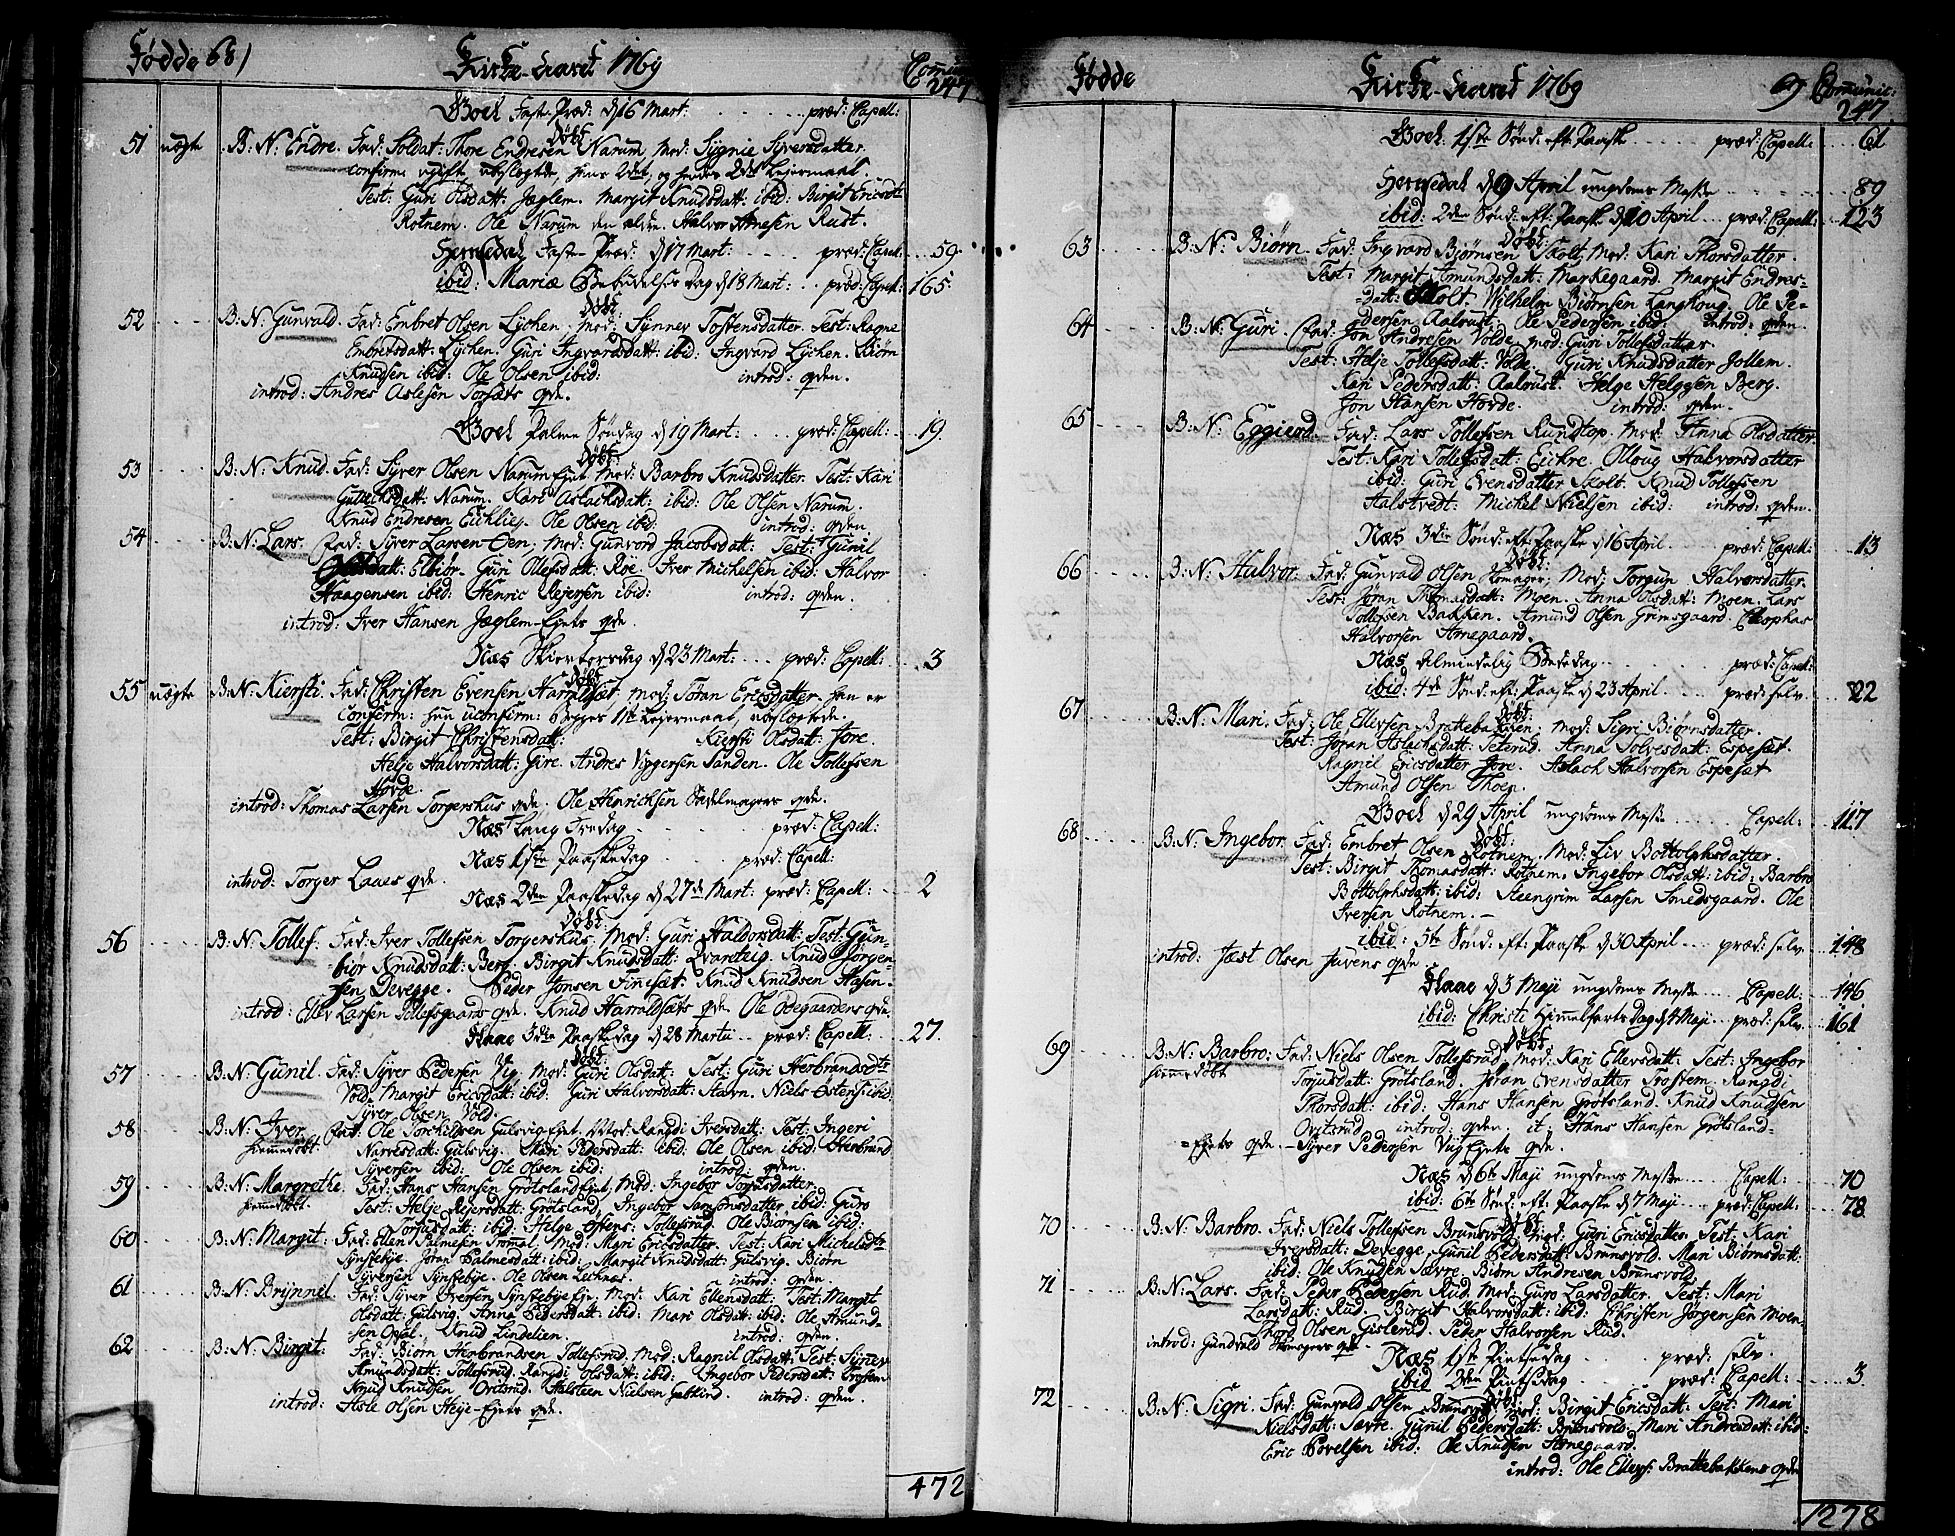 Fødde 681 Kirke-Aaret 1769 Comun:
247
Goel Faste Præd: d 16 Mart: præd: Capell:
Døbt:
51 uægte B: N: Endre. Fad: Soldat: Thore Endresen Narum Mod: Sygnie Syversdatter.
confirm: ugift, ubeslægtede, hans 2det, og hendes 2det Lejermaal.
Test: Guri Olsdatt: Jæglem. Margit Knudsdatt: ibid: Birgit Ericsdt
Rotnem. Ole Narum den ældr. Halvor Arnesen Rust.
Hemsedal Faste-Præd: d 17 Mart: præd: Capell: 59.
ibid: Mariæ Bebudelses Dag d 18 Mart: præd: Capell: 165.
Døbt:
52 B: N: Gunvald. Fad: Embret Olsen Lÿchen. Mod: Synnev Tostensdatter. Test: Ragne
Embretsdatt: Lychen. Guri Ingvardsdatt: ibid: Ingvard Lychen. Biørn
Knudsen ibid: Ole Olsen ibid: introd: qvden.
introd: Andres Aslesen Torsæts qde.
Goel Palme Søndag d 19 Mart: præd: Capell: 19.
Døbt:
53 B: N: Knud. Fad: Syver Olsen Narum Ejet Mod: Barbro Knudsdatter. Test: Kari
Gulichsdatt: Narum. Kari Aslachsdatt: ibid: Ole Olsen Narum.
Knud Endresen Eichlieg. Ole Olsen ibid: introd: qvden
54 B: N: Lars. Fad: Syver Larsen Øen, Mod: Gunvord Jacobsdatt: Test: Gunil
datt: Elbior Guri Ollefsdatt: Roe. Iver Michelsen ibid: Halvor
Haagensen ibid: Henric Rejersen ibid: introd: qvden.
introd: Iver Hansen Jæglem-Ejets qde.
Næs Skiertorsdag d 23 Mart: præd: Capell: 3
Døbt:
55 uægte B: N: Kiersti. Fad: Christen Evensen Harrildset, Mod: Jøran Ericsdatter, han er
confirm: hun uconfirm: Begges 1ste Lejermaal, ubeslægtede.
Test: Birgit Christensdatt: Kiersti Olsdatt: Jore.
Helje Halvorsdatt: Gire. Andres Viggersen Sanden. Ole Tollefsen
Hovde.
introd: Thomas Larsen Torgershus qde. Ole Henrichsen Sadelmagers qde.
Næs Lang Fredag præd: Capell:
Næs 1ste Paaskedag præd: Capell:
introd: Torger Laaes qde.
Næs 2den Paaskedag d 27de Mart: præd: Capell: 2
Døbt:
56 B: N: Tollef: Fad: Iver Tollefsen Torgershus, Mod: Guri Haldorsdatt: Test: Gun-
biør Knudsdatt: Berg. Birgit Knudsdatt: Qvarteig. Knud Jørgen-
sen Devegge. Peder Jonsen Finesæt. Knud Knudsen Hasen-
introd: Ellev Larsen Tollefsgaards qde. Knud Harrildsæts qde. Ole Ødegaardens qde.
Flaae 3die Paaskedag d 28 Martii præd: Capell: 27.
Døbt:
57 B: N: Gunil. Fad: Syver Pedersen Vig. Mod: Guri Olsdatt: Test: Guri Herbrandsdtr
Vold. Margit Ericsdatt: ibid: Guri Halvorsdatt: Stavn. Niels Østens: ibid:
Syver Olsen Vold.
58 B: N: Iver Fad: Ole Torchildsen Gulsvig Ejet. Mod: Rangdi Iversdatt: Test: Ingeri
hiemedøbt. Narvesdatt: Gulsvig. Mari Pedersdatt: ibid: Ole Olsen ibid: Herbrand
Syversen ibid: Ole Olsen ibid: introd: qvden.
59 B: N: Margrethe. Fad: Hans Hansen Grøtsland Ejet; Mod: Ingebor Torjusdatter.
hiemedøbt. Test: Helje Rejersdatt: Grøtsland. Ingebor Samsonsdatter ibid: Guro
Torjusdatt: ibid: Helge Østens: Tollefsrud. Ole Biørnsen ibid:
60 B: N: Margit: Fad: Ellend Palmesen Trommal. Mod: Mari Ericsdatter. Test: Kari Michelsdtr
Synstebije. Jøran Palmesdatt: ibid: Margit Knudsdatt: Gulsvig. Biørn
Syversen Synstebije. Ole Olsen Lechnæs. introd: qvden.
61 B: N: Brynnel. Fad: Syver Iversen Synstebije Ejet; Mod: Kari Ellensdatt: Test: Margit
Olsdatt: Gulsvig. Anna Pedersdatt: ibid: Mari Olsdatt: ibid: Ole Amund-
sen Opsal. Knud Lindelien. introd: qvden.
62 B: N: Birgit: Fad: Biørn Herbrandsen Tollefsrud. Mod: Ragnil Olsdatt: Test: Synev
Amundsdatt: Tollefsrud. Rangdi Olsdatt: ibid: Ingebor Pedersdatt: Trostem
Knud Knudsen Ovitsrud. Halsteen Nielsen Gabblind. introd: qvden.
introd: Asle Olsen Heje-Ejets qde.
472
Fødde Kirke-Aaret 1769 9) Comunic:
247.
Goel 1ste Sønd: eft: Paaske præd: Capell: 61
Hemsedal d 9 April ungdoms Messe 89
ibid: 2den Sønd: eft: Paaske d 10 April præd: Capell: 123
Døbt:
63 B: N: Biørn. Fad: Ingvard Bjørnsen Skolt, Mod: Kari Thorsdatter.
Test: Margit Amundsdatt: Markegaard. Margit Endres-
datt: Skolt. Wilhelm Biørnsen Langhoug. Ole Pe-
dersen Aalrust. Ole Pedersen ibid. introd: qvden.
64 B: N: Guri. Fad: Jon Andresen Volde, Mod: Guri Tollefsdatter.
Test: Helje Tollefsdatt: Volde. Guri Knudsdatter Jollem.
Kari Pedersdatt: Aalrust. Helge Helggsen Berg.
Jon Hansen Hovde. introd: qvden.
65 B: N: Eggierd. Fad: Lars Tollefsen Rundtop. Mod: Anna Olsdatter.
Test: Kari Tollefsdatt: Eichre. Olloug Halvorsdatter
ibid: Guri Evensdatter Skolt. Knud Tollefsen
Halstvedt. Michel Nielsen ibid: introd: qvden.
Næs 3die Sønd: eft: Paaske d 16 April. præd: Capell: 13
Døbt:
66 B: N: Halvor: Fad: Gunvald Olsen Skomager; Mod: Torgun Halvorsdatter.
Test: Jøran Thomasdatt: Moen. Anna Olsdatt: Moen. Lars
Tollefsen Bakken. Amund Olsen Grimsgaard. Cleophas
Halvorsen Arnegaard.
Næs Almindelig Bededag præd: Capell:
ibid: 4de Sønd: eft: Paaske d 23 April. præd: selv. 22
Døbt:
67 B: N: Mari. Fad: Ole Ellevsen Brattebakken; Mod: Sigri Biørnsdatter.
Test: Jøran Aslachsdatt: Seterud. Anna Solvesdatt: Espeset.
Ragnil Ericsdatter Jore. Aslach Halvorsen Espeset
Amund Olsen Thoen.
Goel d 29 April ungdoms Messe Capell: 117
Døbt:
68 B: N: Ingebor Fad: Embret Olsen Rotnem. Mod: Liv Bottolphsdatter.
Test: Birgit Thomasdatt: Rotnem. Ingebor Olsdatt: ibid: Barbro
Bottolphsdatt: ibid: Steengrim Larsen Smedsgaard. Ole
Iversen Rotnem.
ibid: 5te Sønd: eft: Paaske d 30 April præd: selv. 148
introd: Jæst Olsen Juvens qde
Flaae d 3 Maji ungdoms Messe Capell: 146
ibid: Christi Himmelfarts Dag d 4 Maji præd: selv. 161
Døbt:
69 B: N: Barbro: Fad: Niels Olsen Tollefsrud; Mod: Kari Ellevsdatt: Test: Ingebor
hiemedøbt Torjusdatt: Grøtsland. Jøran Evensdatter Trostem. Rangdi
Thorsdatt: ibid: Hans Hansen Grøtsland. Knud Knudsen
Ovitsrud introd: qvden. it: Hans Hansen Grøtsland-
-Ejets qde. Syver Pedersen Vig Ejets qde.
Næs d 6te Maji ungdoms Messe Capell: 70
ibid: 6te Sønd: eft: Paaske d 7 Maji præd: Capell: 78
Døbt:
70 B: N: Barbro. Fad: Niels Tollefsen Brunsvold; Mod: Guri Ericsdatter. Test: Kari
Iversdatt: Devegge. Gunil Pedersdatt: Brunsvold. Mari Biørnsdatt:
ibid: Ole Knudsen Sævre. Biørn Andresen Brunsvold.
71 B: N: Lars. Fad: Peder Pedersen Rud. Mod: Guro Larsdatter. Test: Mari
Larsdatt: Rud. Birgit Halvorsdatt: ibid: Christen Jørgensen Moen.
Thor Olsen Gislerud. Peder Halvorsen Rud.
introd: Gundvald Skomagers qde.
Næs 1ste Pintsedag præd: selv.
ibid 2den Pintsdag præd: Capell: 3
Døbt:
72 B: N: Sigri. Fad: Gunvald Olsen Brunsvold, Mod: Birgit Ericsdatt: Test: Mari
Nielsdatt: Sævre. Gunil Pedersdatt: Brunsvold. Mari Andresdatt: ibid:
Eric Povelsen ibid: Ole Knudsen Arnegaard.
introd: Ole Ellevs: Brattebakkens qde
1278